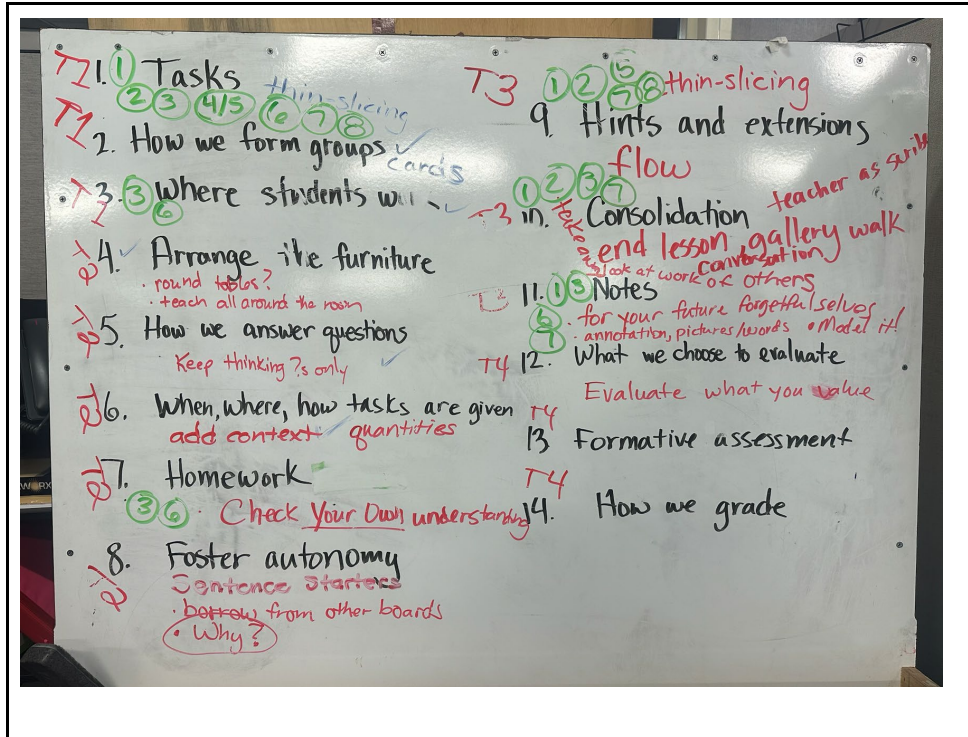 T1 1. ① Tasks
② ③ 4/5 ⑥ ⑦ ⑧ thin-slicing
T1 2. How we form groups ✓ cards
T1 3. ③ Where students
⑥
T2 4. ✓ Arrange the furniture
· round tables?
· teach all around the room
T2 5. How we answer questions
Keep thinking ?s only ✓
T2 6. When, where, how tasks are given
add context quantities
T2 7. Homework
③ ⑥ · Check Your Own understanding
T2 8. Foster autonomy
Sentence Starters
· borrow from other boards
· Why?
T3 ① ② ⑤ ⑦ ⑧ thin-slicing
9. Hints and extensions
flow
① ② ③ ⑦ teacher as scribe
T3 10. Consolidation
end lesson gallery walk
conversation
look at work of others
T3 11. ① ③ Notes
⑥ · for your future forgetful selves
⑦ · annotation, pictures/words • Model it!
T4 12. What we choose to evaluate
Evaluate what you value
T4
13 Formative assessment
T4
14. How we grade